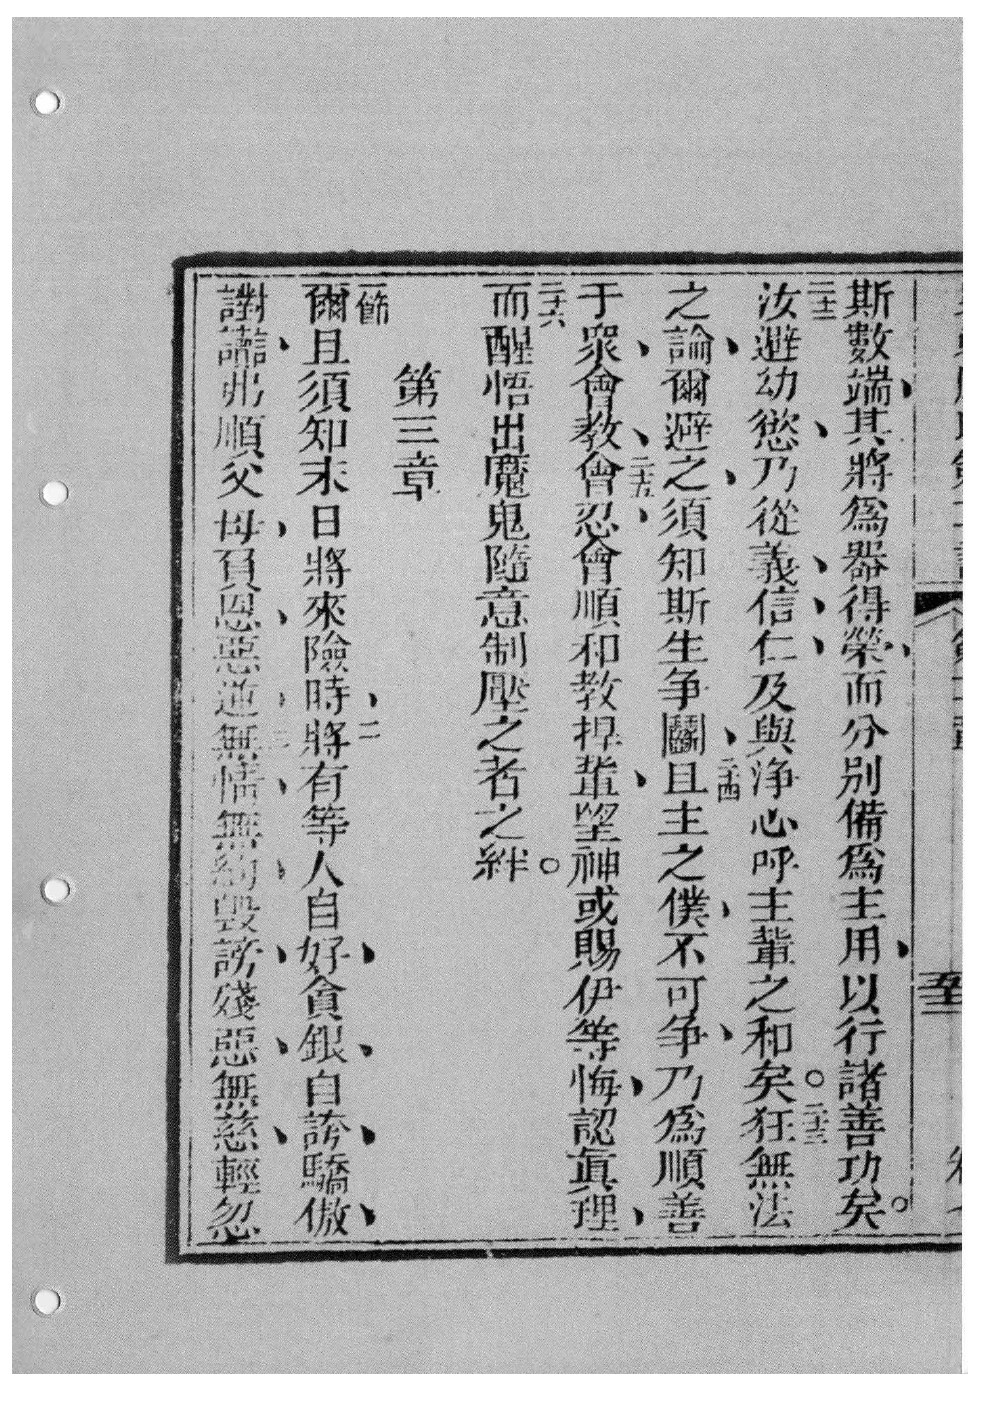 斯數端、其將爲器得榮、而分別備爲主用、以行諸善功矣。
二十二汝避幼慾、乃從義、信、仁、及與淨心呼主輩之和矣。二十三狂無法
之論、爾避之、須知斯生爭鬭、二十四且主之僕、不可爭、乃爲順善
于眾、會教、二十五會忍、會順和教捍輩、望神或賜伊等悔、認眞理、
二十六而醒悟出魔鬼隨意制壓之者之絆。
第三章
一節爾且須知末日將來險時、二將有等人自好、貪銀、自誇、驕傲、
謗讟、弗順父母、負恩、惡逆、三無情、無約、毀謗、殘惡、無慈、輕忽